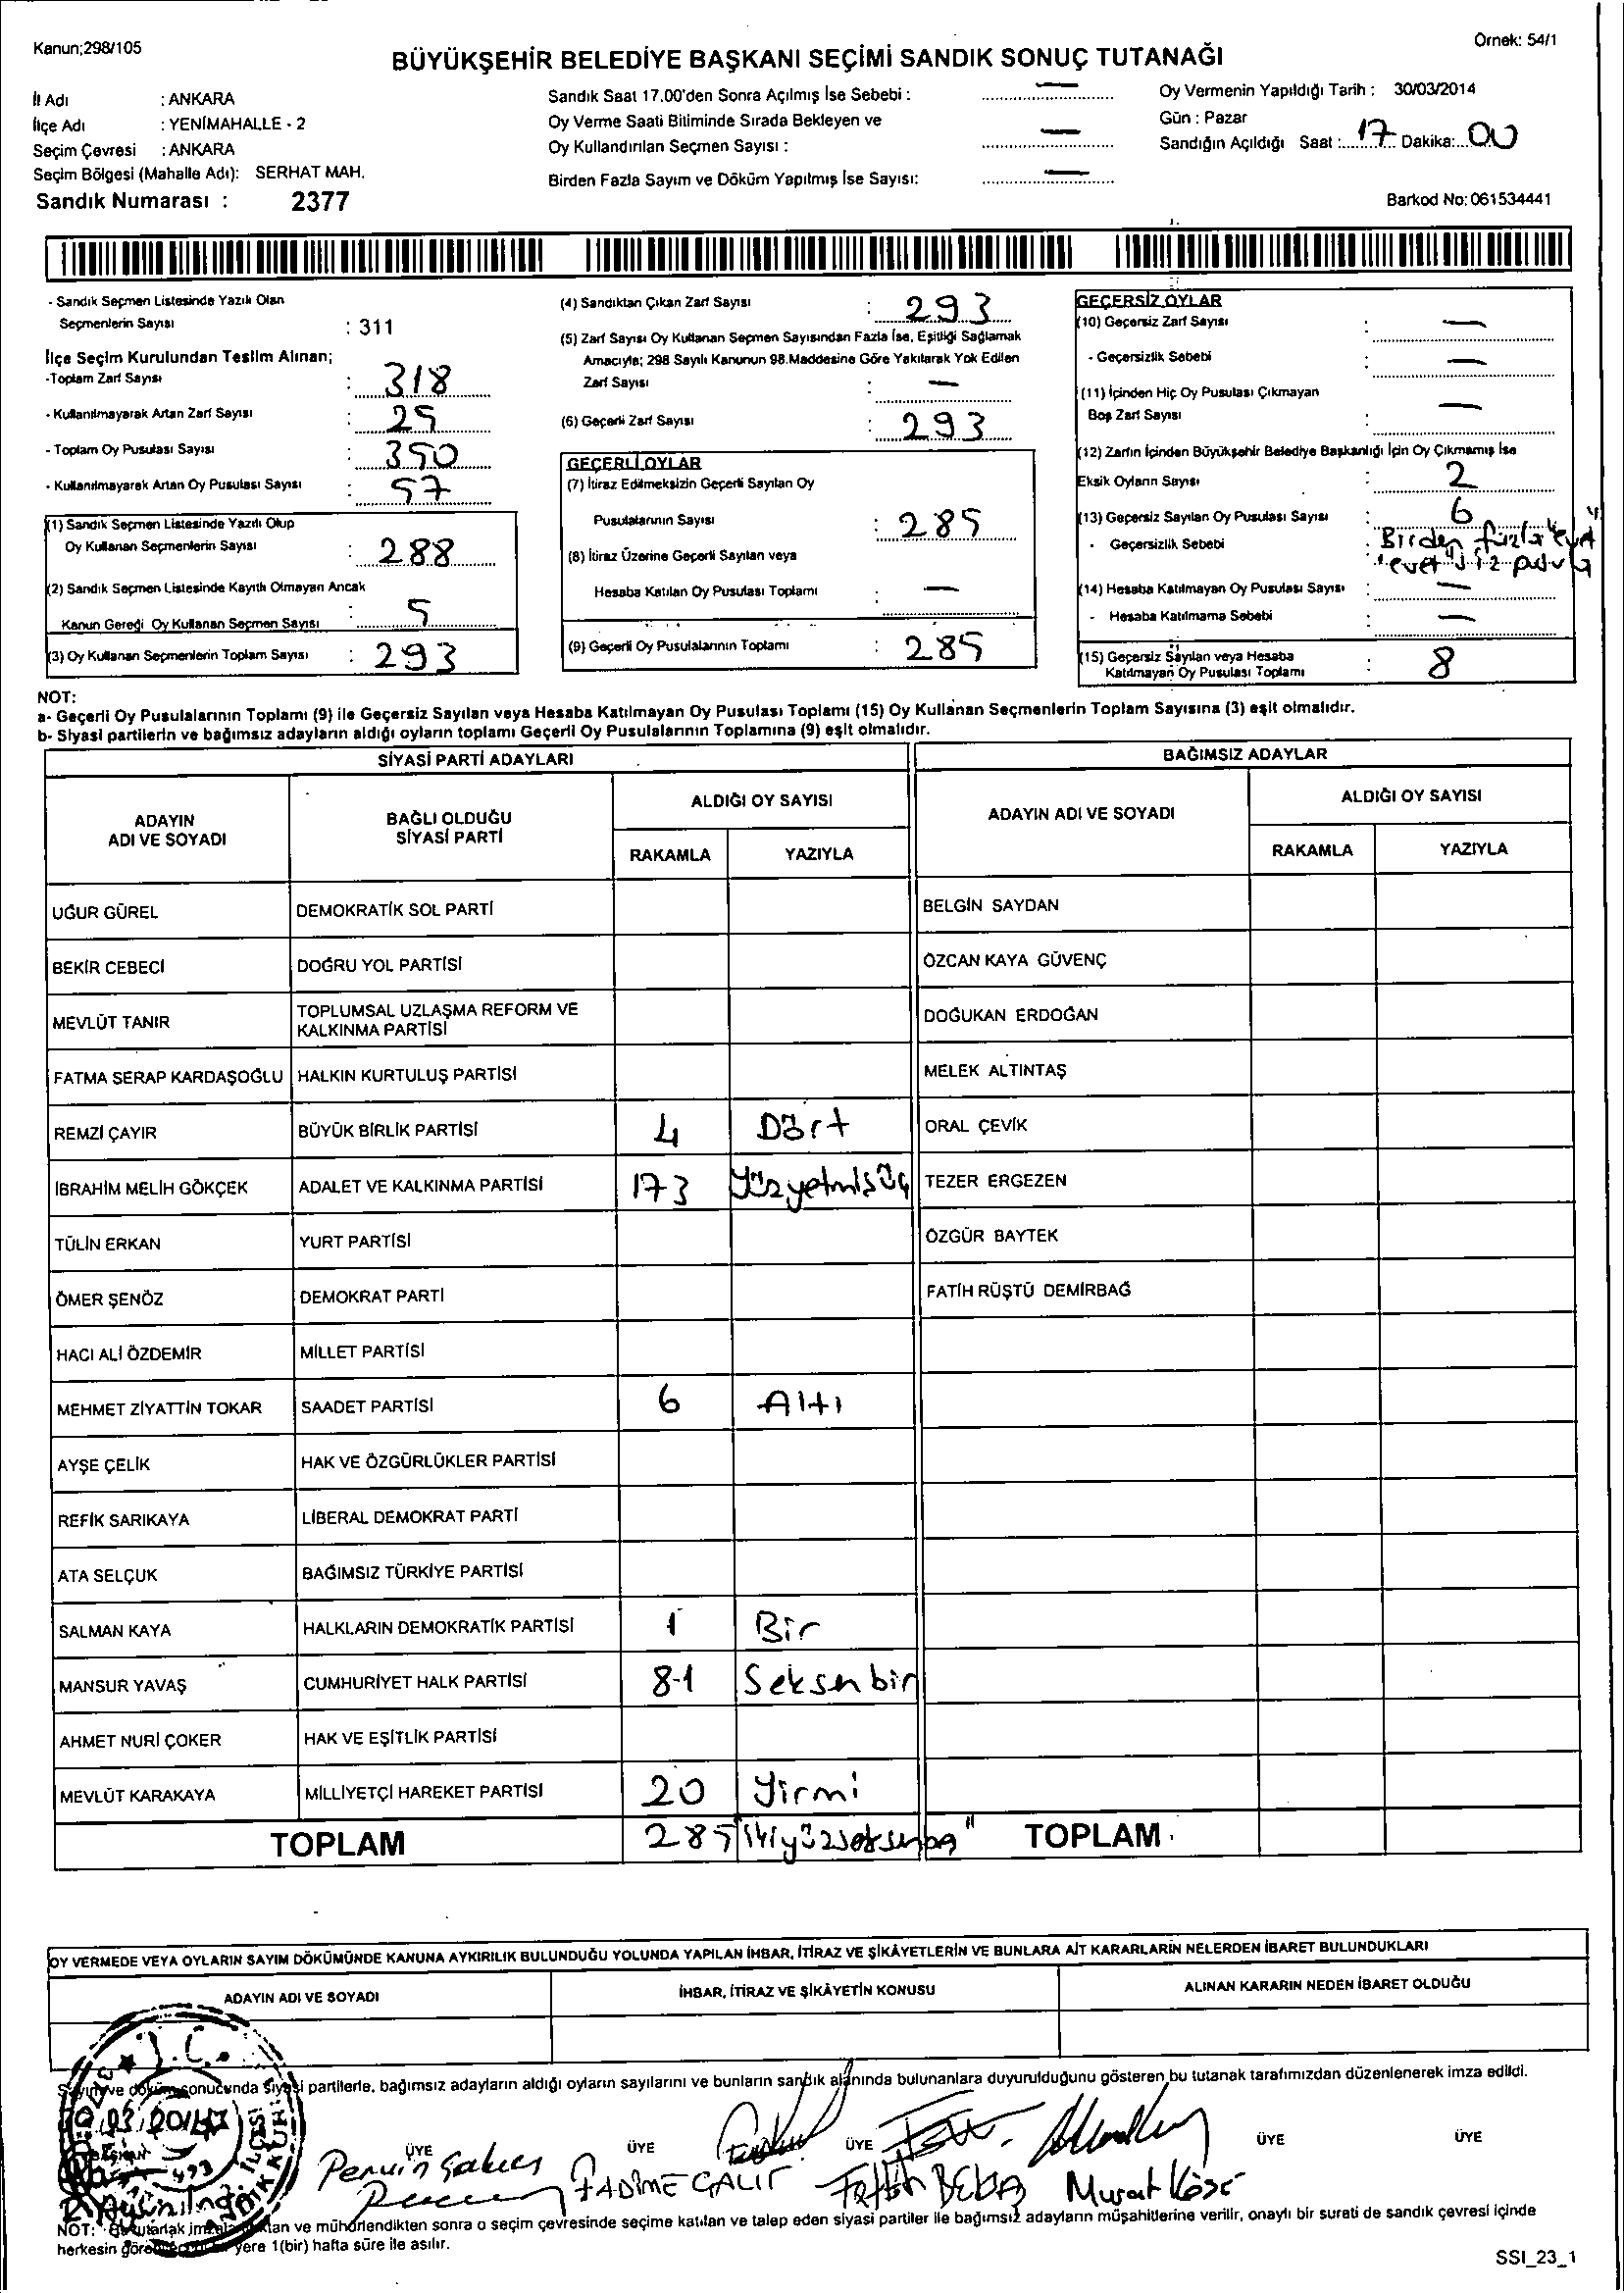 Kanun;298/105
Örnek: 54/1
BÜYÜKŞEHİR BELEDİYE BAŞKANI SEÇİMİ SANDIK SONUÇ TUTANAĞI
İl Adı : ANKARA
İlçe Adı : YENİMAHALLE - 2
Seçim Çevresi : ANKARA
Seçim Bölgesi (Mahalle Adı): SERHAT MAH.
Sandık Numarası : 2377
Sandık Saat 17.00'den Sonra Açılmış İse Sebebi : —
Oy Verme Saati Bitiminde Sırada Bekleyen ve
Oy Kullandırılan Seçmen Sayısı : —
Birden Fazla Sayım ve Döküm Yapılmış İse Sayısı: —
Oy Vermenin Yapıldığı Tarih : 30/03/2014
Gün : Pazar
Sandığın Açıldığı Saat : 17 Dakika: 00
Barkod No: 061534441
- Sandık Seçmen Listesinde Yazılı Olan
Seçmenlerin Sayısı : 311
İlçe Seçim Kurulundan Teslim Alınan;
-Toplam Zarf Sayısı : 318
- Kullanılmayarak Artan Zarf Sayısı : 25
- Toplam Oy Pusulası Sayısı : 350
- Kullanılmayarak Artan Oy Pusulası Sayısı : 57
(1) Sandık Seçmen Listesinde Yazılı Olup
Oy Kullanan Seçmenlerin Sayısı : 288
(2) Sandık Seçmen Listesinde Kayıtlı Olmayan Ancak
Kanun Gereği Oy Kullanan Seçmen Sayısı : 5
(3) Oy Kullanan Seçmenlerin Toplam Sayısı : 293
(4) Sandıktan Çıkan Zarf Sayısı : 293
(5) Zarf Sayısı Oy Kullanan Seçmen Sayısından Fazla İse, Eşitliği Sağlamak
Amacıyla; 298 Sayılı Kanunun 98.Maddesine Göre Yakılarak Yok Edilen
Zarf Sayısı : —
(6) Geçerli Zarf Sayısı : 293
GEÇERLİ OYLAR
(7) İtiraz Edilmeksizin Geçerli Sayılan Oy
Pusulalarının Sayısı : 285
(8) İtiraz Üzerine Geçerli Sayılan veya
Hesaba Katılan Oy Pusulası Toplamı : —
(9) Geçerli Oy Pusulalarının Toplamı : 285
GEÇERSİZ OYLAR
(10) Geçersiz Zarf Sayısı : —
- Geçersizlik Sebebi : —
(11) İçinden Hiç Oy Pusulası Çıkmayan
Boş Zarf Sayısı : —
(12) Zarfın İçinden Büyükşehir Belediye Başkanlığı İçin Oy Çıkmamış İse
Eksik Oyların Sayısı : 2
(13) Geçersiz Sayılan Oy Pusulası Sayısı : 6
- Geçersizlik Sebebi : Birden fazla "evet"
"evet"siz pusula
(14) Hesaba Katılmayan Oy Pusulası Sayısı : —
- Hesaba Katılmama Sebebi : —
(15) Geçersiz Sayılan veya Hesaba
Katılmayan Oy Pusulası Toplamı : 8
NOT:
a- Geçerli Oy Pusulalarının Toplamı (9) ile Geçersiz Sayılan veya Hesaba Katılmayan Oy Pusulası Toplamı (15) Oy Kullanan Seçmenlerin Toplam Sayısına (3) eşit olmalıdır.
b- Siyasi partilerin ve bağımsız adayların aldığı oyların toplamı Geçerli Oy Pusulalarının Toplamına (9) eşit olmalıdır.
SİYASİ PARTİ ADAYLARI
ADAYIN
ADI VE SOYADI
BAĞLI OLDUĞU
SİYASİ PARTİ
ALDIĞI OY SAYISI
RAKAMLA YAZIYLA
BAĞIMSIZ ADAYLAR
ADAYIN ADI VE SOYADI
ALDIĞI OY SAYISI
RAKAMLA YAZIYLA
UĞUR GÜREL DEMOKRATİK SOL PARTİ BELGİN SAYDAN
BEKİR CEBECİ DOĞRU YOL PARTİSİ ÖZCAN KAYA GÜVENÇ
MEVLÜT TANIR TOPLUMSAL UZLAŞMA REFORM VE
KALKINMA PARTİSİ DOĞUKAN ERDOĞAN
FATMA SERAP KARDAŞOĞLU HALKIN KURTULUŞ PARTİSİ MELEK ALTINTAŞ
REMZİ ÇAYIR BÜYÜK BİRLİK PARTİSİ 4 Dört ORAL ÇEVİK
İBRAHİM MELİH GÖKÇEK ADALET VE KALKINMA PARTİSİ 173 Yüzyetmişüç TEZER ERGEZEN
TÜLİN ERKAN YURT PARTİSİ ÖZGÜR BAYTEK
ÖMER ŞENÖZ DEMOKRAT PARTİ FATİH RÜŞTÜ DEMİRBAĞ
HACI ALİ ÖZDEMİR MİLLET PARTİSİ
MEHMET ZİYATTİN TOKAR SAADET PARTİSİ 6 Altı
AYŞE ÇELİK HAK VE ÖZGÜRLÜKLER PARTİSİ
REFİK SARIKAYA LİBERAL DEMOKRAT PARTİ
ATA SELÇUK BAĞIMSIZ TÜRKİYE PARTİSİ
SALMAN KAYA HALKLARIN DEMOKRATİK PARTİSİ 1 Bir
MANSUR YAVAŞ CUMHURİYET HALK PARTİSİ 81 Seksenbir
AHMET NURİ ÇOKER HAK VE EŞİTLİK PARTİSİ
MEVLÜT KARAKAYA MİLLİYETÇİ HAREKET PARTİSİ 20 Yirmi
TOPLAM 285 "ikiyüzseksenbeş" TOPLAM
OY VERMEDE VEYA OYLARIN SAYIM DÖKÜMÜNDE KANUNA AYKIRILIK BULUNDUĞU YOLUNDA YAPILAN İHBAR, İTİRAZ VE ŞİKÂYETLERİN VE BUNLARA AİT KARARLARIN NELERDEN İBARET BULUNDUKLARI
ADAYIN ADI VE SOYADI İHBAR, İTİRAZ VE ŞİKÂYETİN KONUSU ALINAN KARARIN NEDEN İBARET OLDUĞU
Sayım ve döküm sonucunda siyasi partilerle, bağımsız adayların aldığı oyların sayılarını ve bunların sandık alanında bulunanlara duyurulduğunu gösteren bu tutanak tarafımızdan düzenlenerek imza edildi.
T.C.
ÜYE ÜYE ÜYE ÜYE ÜYE
Pervin FADİME Fatih Murat Köse
NOT: Bu tutanak imzalandıktan ve mühürlendikten sonra o seçim çevresinde seçime katılan ve talep eden siyasi partiler ile bağımsız adayların müşahitlerine verilir, onaylı bir sureti de sandık çevresi içinde
herkesin görebileceği bir yere 1(bir) hafta süre ile asılır.
SSI_23_1